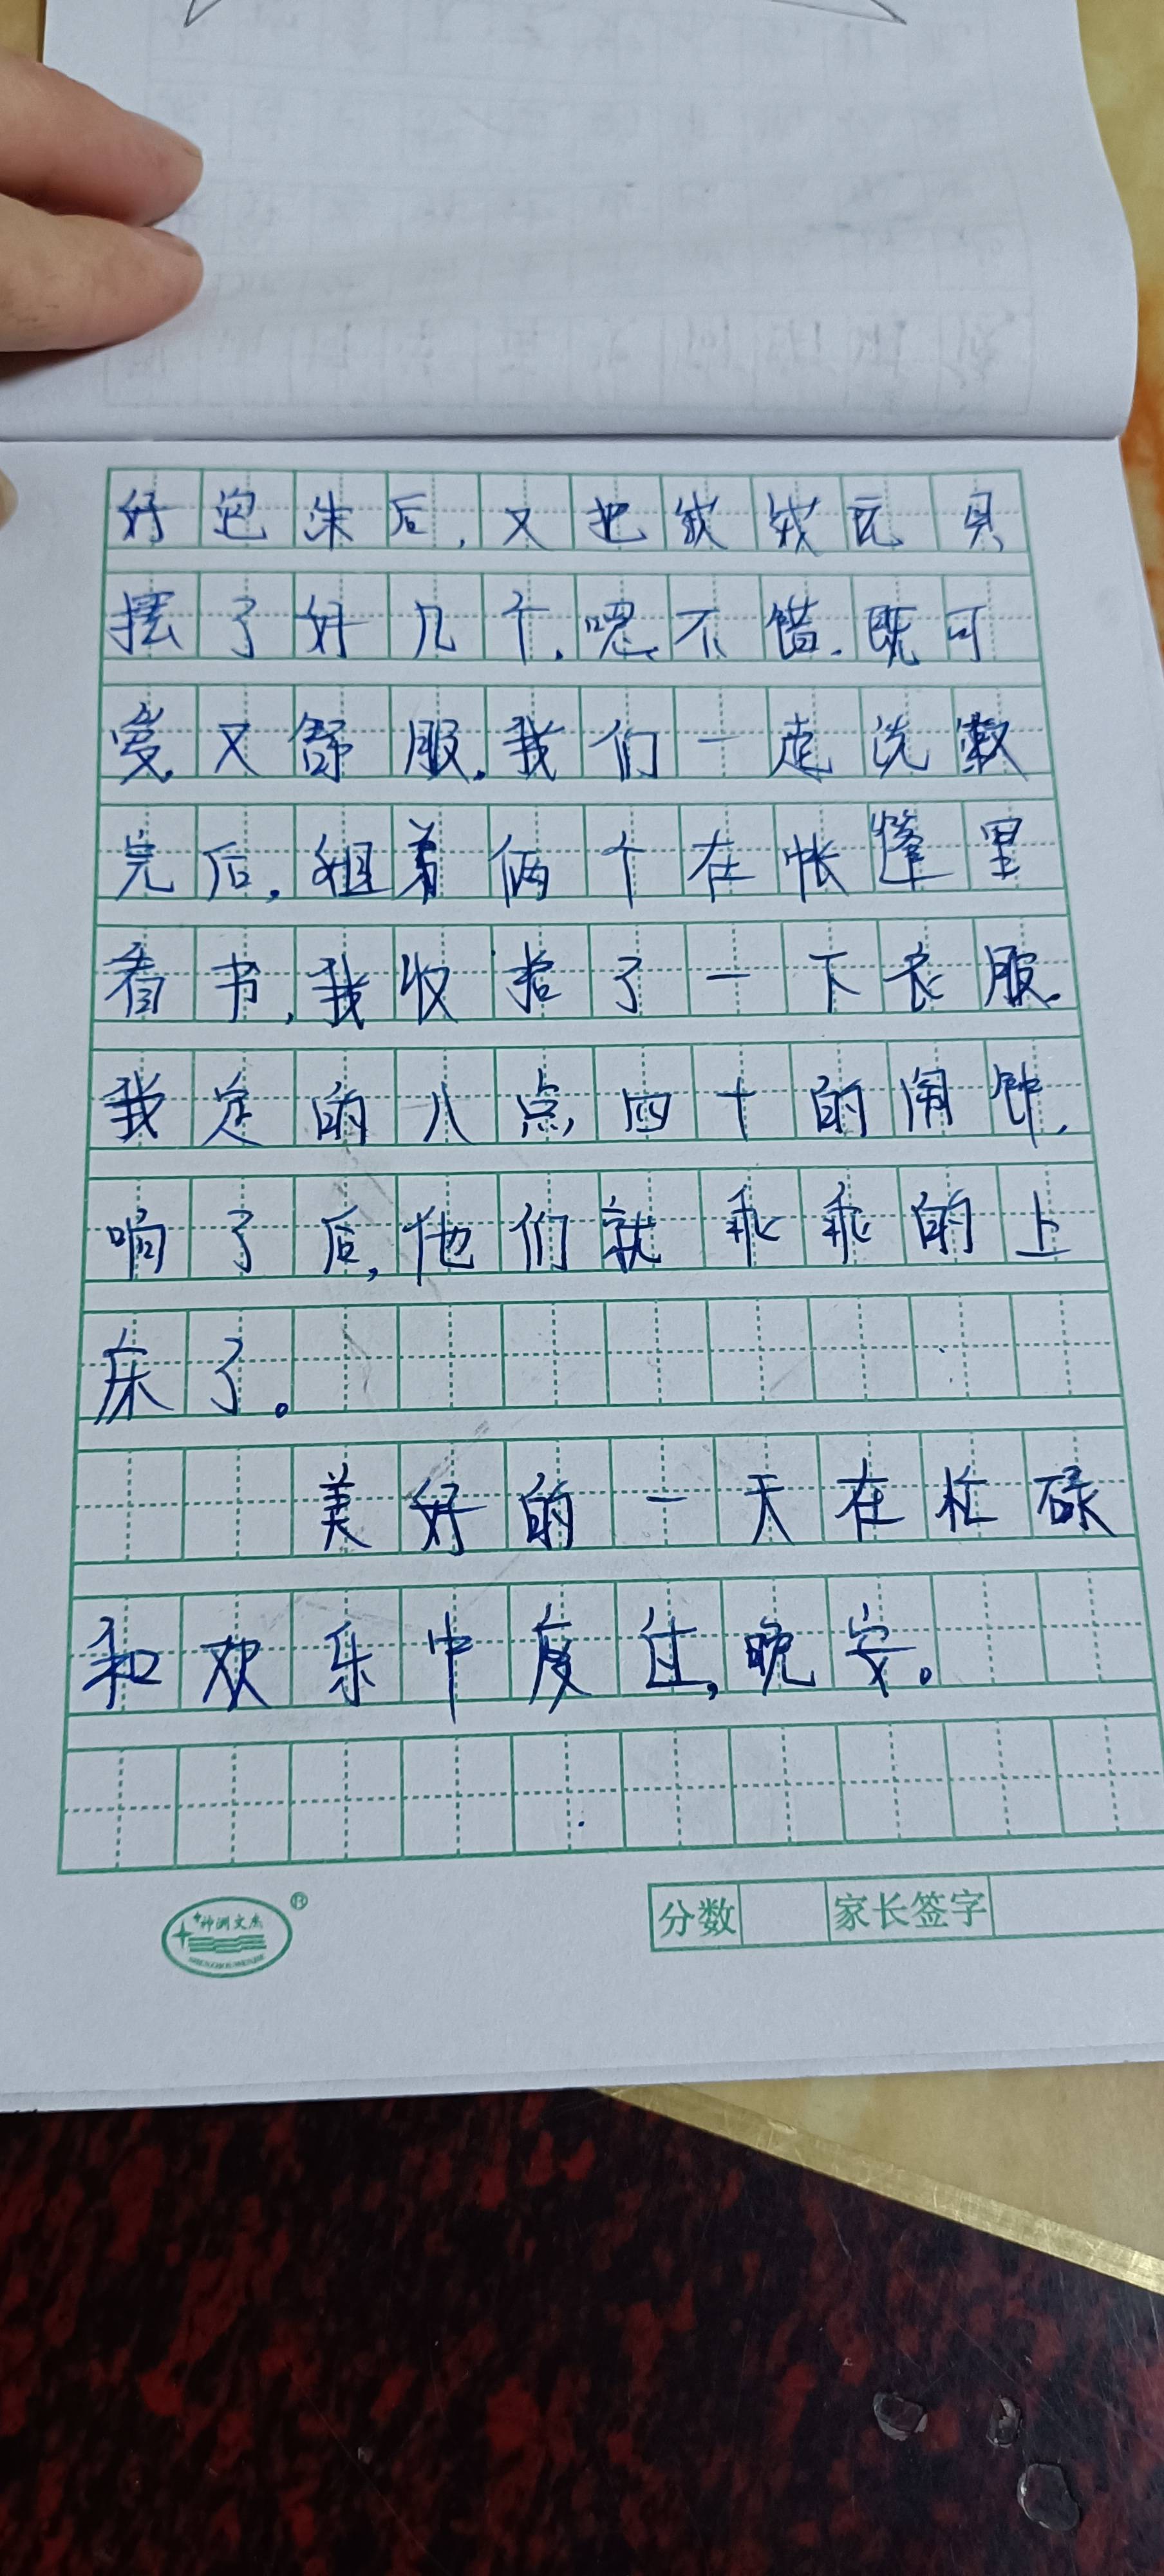 好泡沫后,又把绒绒玩具
摆了好几个,嗯,不错,既可
爱,又舒服,我们一走洗漱
完后,姐弟俩个在帐篷里
看书,我收拾了一下衣服,
我定的八点四十的闹钟,
响了后,他们就乖乖的上
床了。
美好的一天在忙碌
和欢乐中度过,晚安。
神洲文杰
分数 家长签字